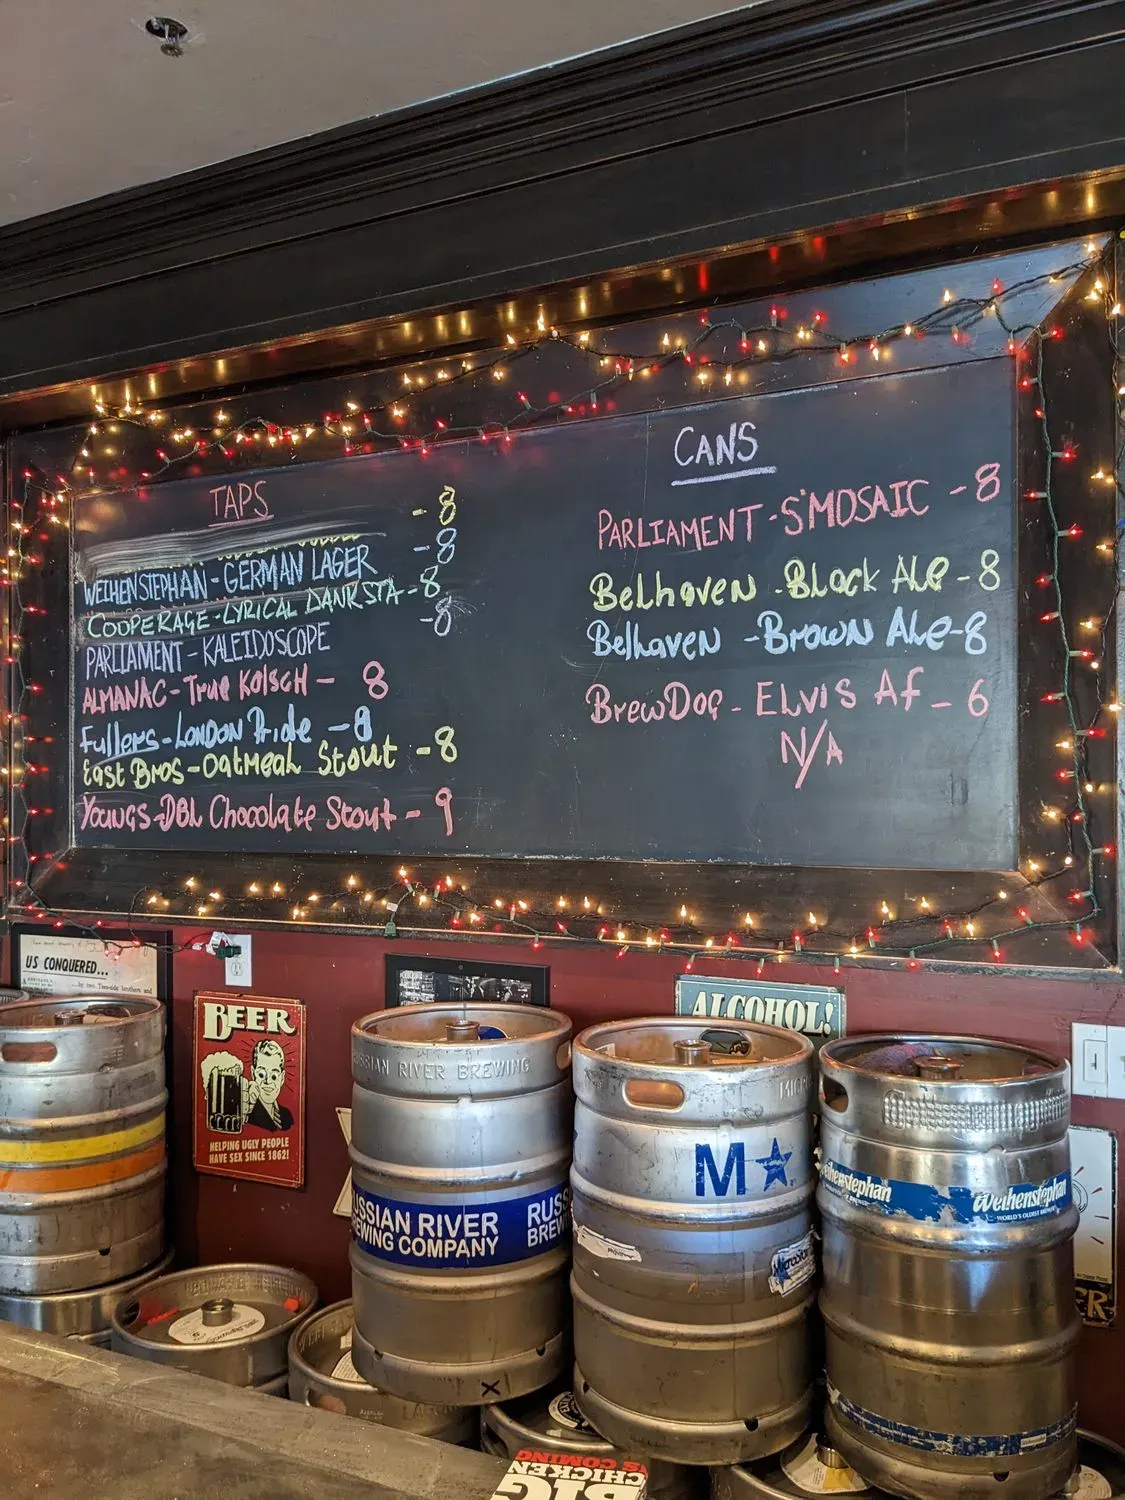 TAPS
- 8
WEIHENSTEPHAN - GERMAN LAGER - 8
COOPERAGE - LYRICAL DANKSTA - 8
PARLIAMENT - KALEIDOSCOPE - 8
ALMANAC - True Kolsch - 8
Fullers - London Pride - 8
East Bros - Oatmeal Stout - 8
Youngs - DBL Chocolate Stout - 9
CANS
PARLIAMENT - S'MOSAIC - 8
Belhaven - Black Ale - 8
Belhaven - Brown Ale - 8
BrewDog - ELVIS AF - 6
N/A
US CONQUERED...
BEER
HELPING UGLY PEOPLE
HAVE SEX SINCE 1862!
ALCOHOL!
RUSSIAN RIVER BREWING
USSIAN RIVER
EWING COMPANY
RUSS
BREW
M
Weihenstephan
Weihenstephan
WORLD'S OLDEST
ER
IS COMING
CHICKEN
BIG